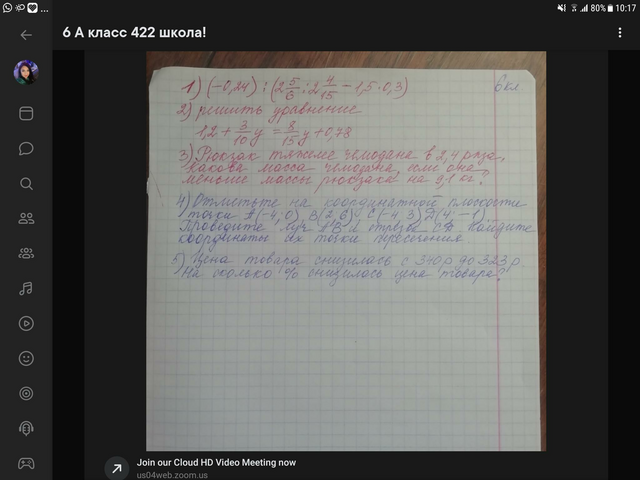 80% 10:17
6 А класс 422 школа!
6 кл
1) (-0,24) : (2 5/6 : 2 4/15 - 1,5·0,3)
2) решить уравнение
1,2 + 3/10 y = 8/15 y + 0,78
3) Рюкзак тяжелее чемодана в 2,4 раза.
Какова масса чемодана, если она
меньше массы рюкзака на 9,1 кг?
4) Отметьте на координатной плоскости
точки А(-4; 0), В(2; 6), С(-4; 3) Д(4; -1)
Проведите луч АВ и отрезок СД. Найдите
координаты их точки пересечения.
5) Цена товара снизилась с 340р до 323р.
На сколько % снизилась цена товара?
Join our Cloud HD Video Meeting now
us04web.zoom.us